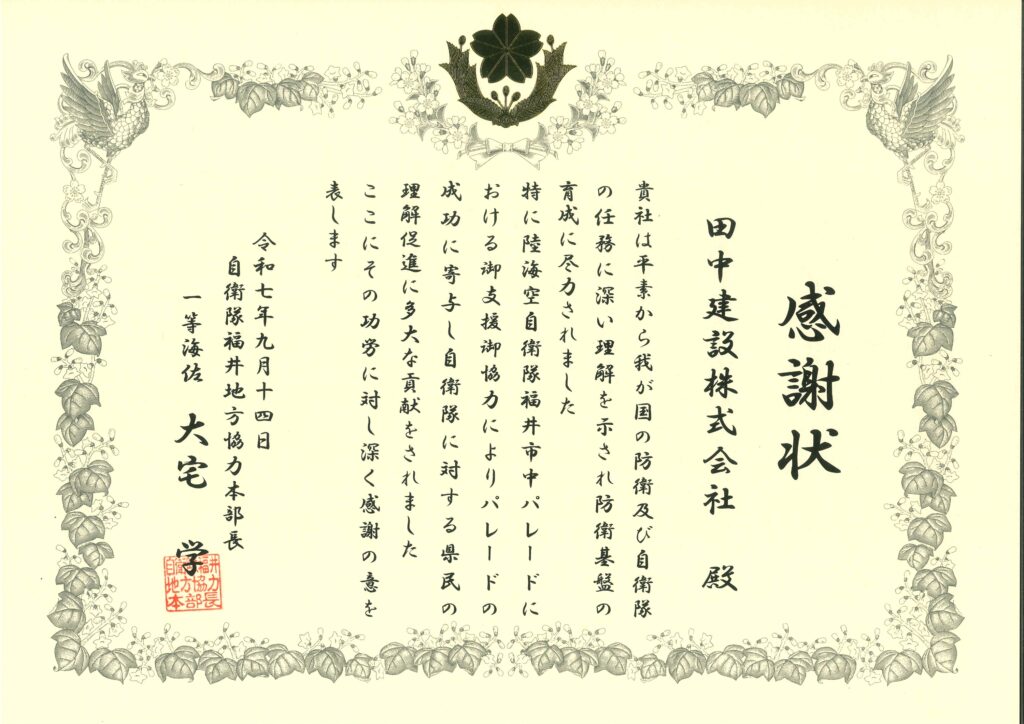 感謝状
田中建設株式会社 殿
貴社は平素から我が国の防衛及び自衛隊
の任務に深い理解を示され防衛基盤の
育成に尽力されました
特に陸海空自衛隊福井市中パレードに
おける御支援御協力によりパレードの
成功に寄与し自衛隊に対する県民の
理解促進に多大な貢献をされました
ここにその功労に対し深く感謝の意を
表します
令和七年九月十四日
自衛隊福井地方協力本部長
一等海佐 大宅 学
自衛隊福井
地方協力
本部長